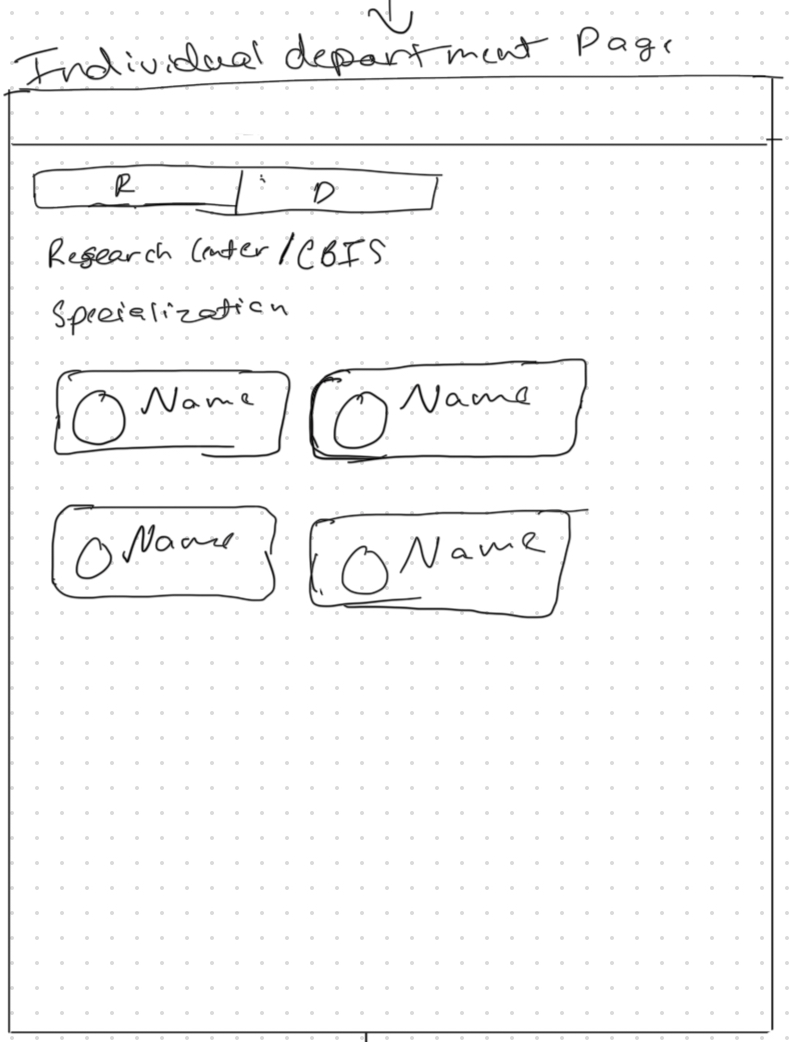 Individual department Page
R D
Research Center/CBIS
Specialization
Name Name
Name Name